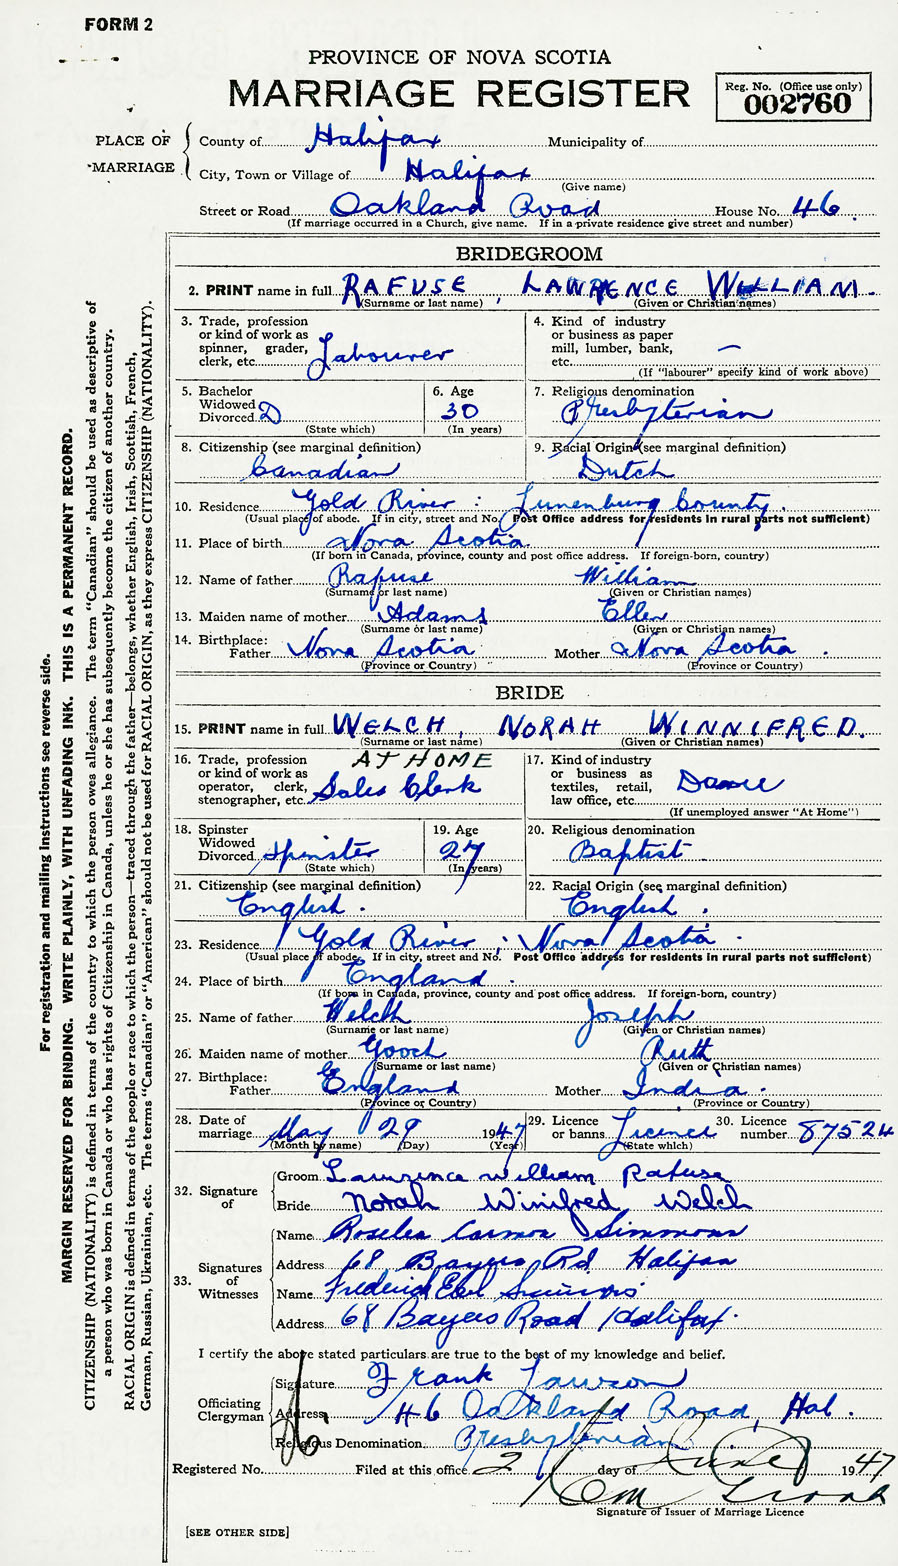 FORM 2
PROVINCE OF NOVA SCOTIA
MARRIAGE REGISTER
Reg. No. (Office use only)
002760
PLACE OF MARRIAGE
County of Halifax Municipality of
City, Town or Village of Halifax
(Give name)
Street or Road Oakland Road House No. 46.
(If marriage occurred in a Church, give name. If in a private residence give street and number)
BRIDEGROOM
2. PRINT name in full RAFUSE, LAWRENCE WILLIAM.
(Surname or last name) (Given or Christian names)
3. Trade, profession or kind of work as spinner, grader, clerk, etc. Labourer
4. Kind of industry or business as paper mill, lumber, bank, etc. —
(If "labourer" specify kind of work above)
5. Bachelor Widowed Divorced D
(State which)
6. Age 30
(In years)
7. Religious denomination Presbyterian
8. Citizenship (see marginal definition) Canadian
9. Racial Origin (see marginal definition) Dutch
10. Residence Gold River : Lunenburg County.
(Usual place of abode. If in city, street and No. Post Office address for residents in rural parts not sufficient)
11. Place of birth Nova Scotia
(If born in Canada, province, county and post office address. If foreign-born, country)
12. Name of father Rafuse William
(Surname or last name) (Given or Christian names)
13. Maiden name of mother Adams Ellen
(Surname or last name) (Given or Christian names)
14. Birthplace: Father Nova Scotia Mother Nova Scotia.
(Province or Country) (Province or Country)
BRIDE
15. PRINT name in full WELCH, NORAH WINNIFRED.
(Surname or last name) (Given or Christian names)
16. Trade, profession or kind of work as operator, clerk, stenographer, etc. AT HOME Sales Clerk
17. Kind of industry or business as textiles, retail, law office, etc.
(If unemployed answer "At Home")
18. Spinster Widowed Divorced Spinster
(State which)
19. Age 27
(In years)
20. Religious denomination Baptist.
21. Citizenship (see marginal definition) English.
22. Racial Origin (see marginal definition) English.
23. Residence Gold River, Nova Scotia.
(Usual place of abode. If in city, street and No. Post Office address for residents in rural parts not sufficient)
24. Place of birth England.
(If born in Canada, province, county and post office address. If foreign-born, country)
25. Name of father Welch Joseph
(Surname or last name) (Given or Christian names)
26. Maiden name of mother Gooch Ruth
(Surname or last name) (Given or Christian names)
27. Birthplace: Father England Mother India.
(Province or Country) (Province or Country)
28. Date of marriage May 29 1947
(Month by name) (Day) (Year)
29. Licence or banns Licence
(State which)
30. Licence number 87524
32. Signature of
Groom Lawrence William Rafuse
Bride Norah Winifred Welch
33. Signatures of Witnesses
Name Simmons
Address 68 Bayers Rd. Halifax
Name Frederick Earl Simmons
Address 68 Bayers Road Halifax.
I certify the above stated particulars are true to the best of my knowledge and belief.
Officiating Clergyman
Signature Frank Lawson
Address 46 Oakland Road, Hal.
Religious Denomination Presbyterian
Registered No. Filed at this office 2 day of June 1947
Signature of Issuer of Marriage Licence
[SEE OTHER SIDE]
For registration and mailing instructions see reverse side.
MARGIN RESERVED FOR BINDING. WRITE PLAINLY, WITH UNFADING INK. THIS IS A PERMANENT RECORD.
CITIZENSHIP (NATIONALITY) is defined in terms of the country to which the person owes allegiance. The term "Canadian" should be used as descriptive of
a person who was born in Canada or who has rights of Citizenship in Canada, unless he or she has subsequently become the citizen of another country.
RACIAL ORIGIN is defined in terms of the people or race to which the person—traced through the father—belongs, whether English, Irish, Scottish, French,
German, Russian, Ukrainian, etc. The terms "Canadian" or "American" should not be used for RACIAL ORIGIN, as they express CITIZENSHIP (NATIONALITY).